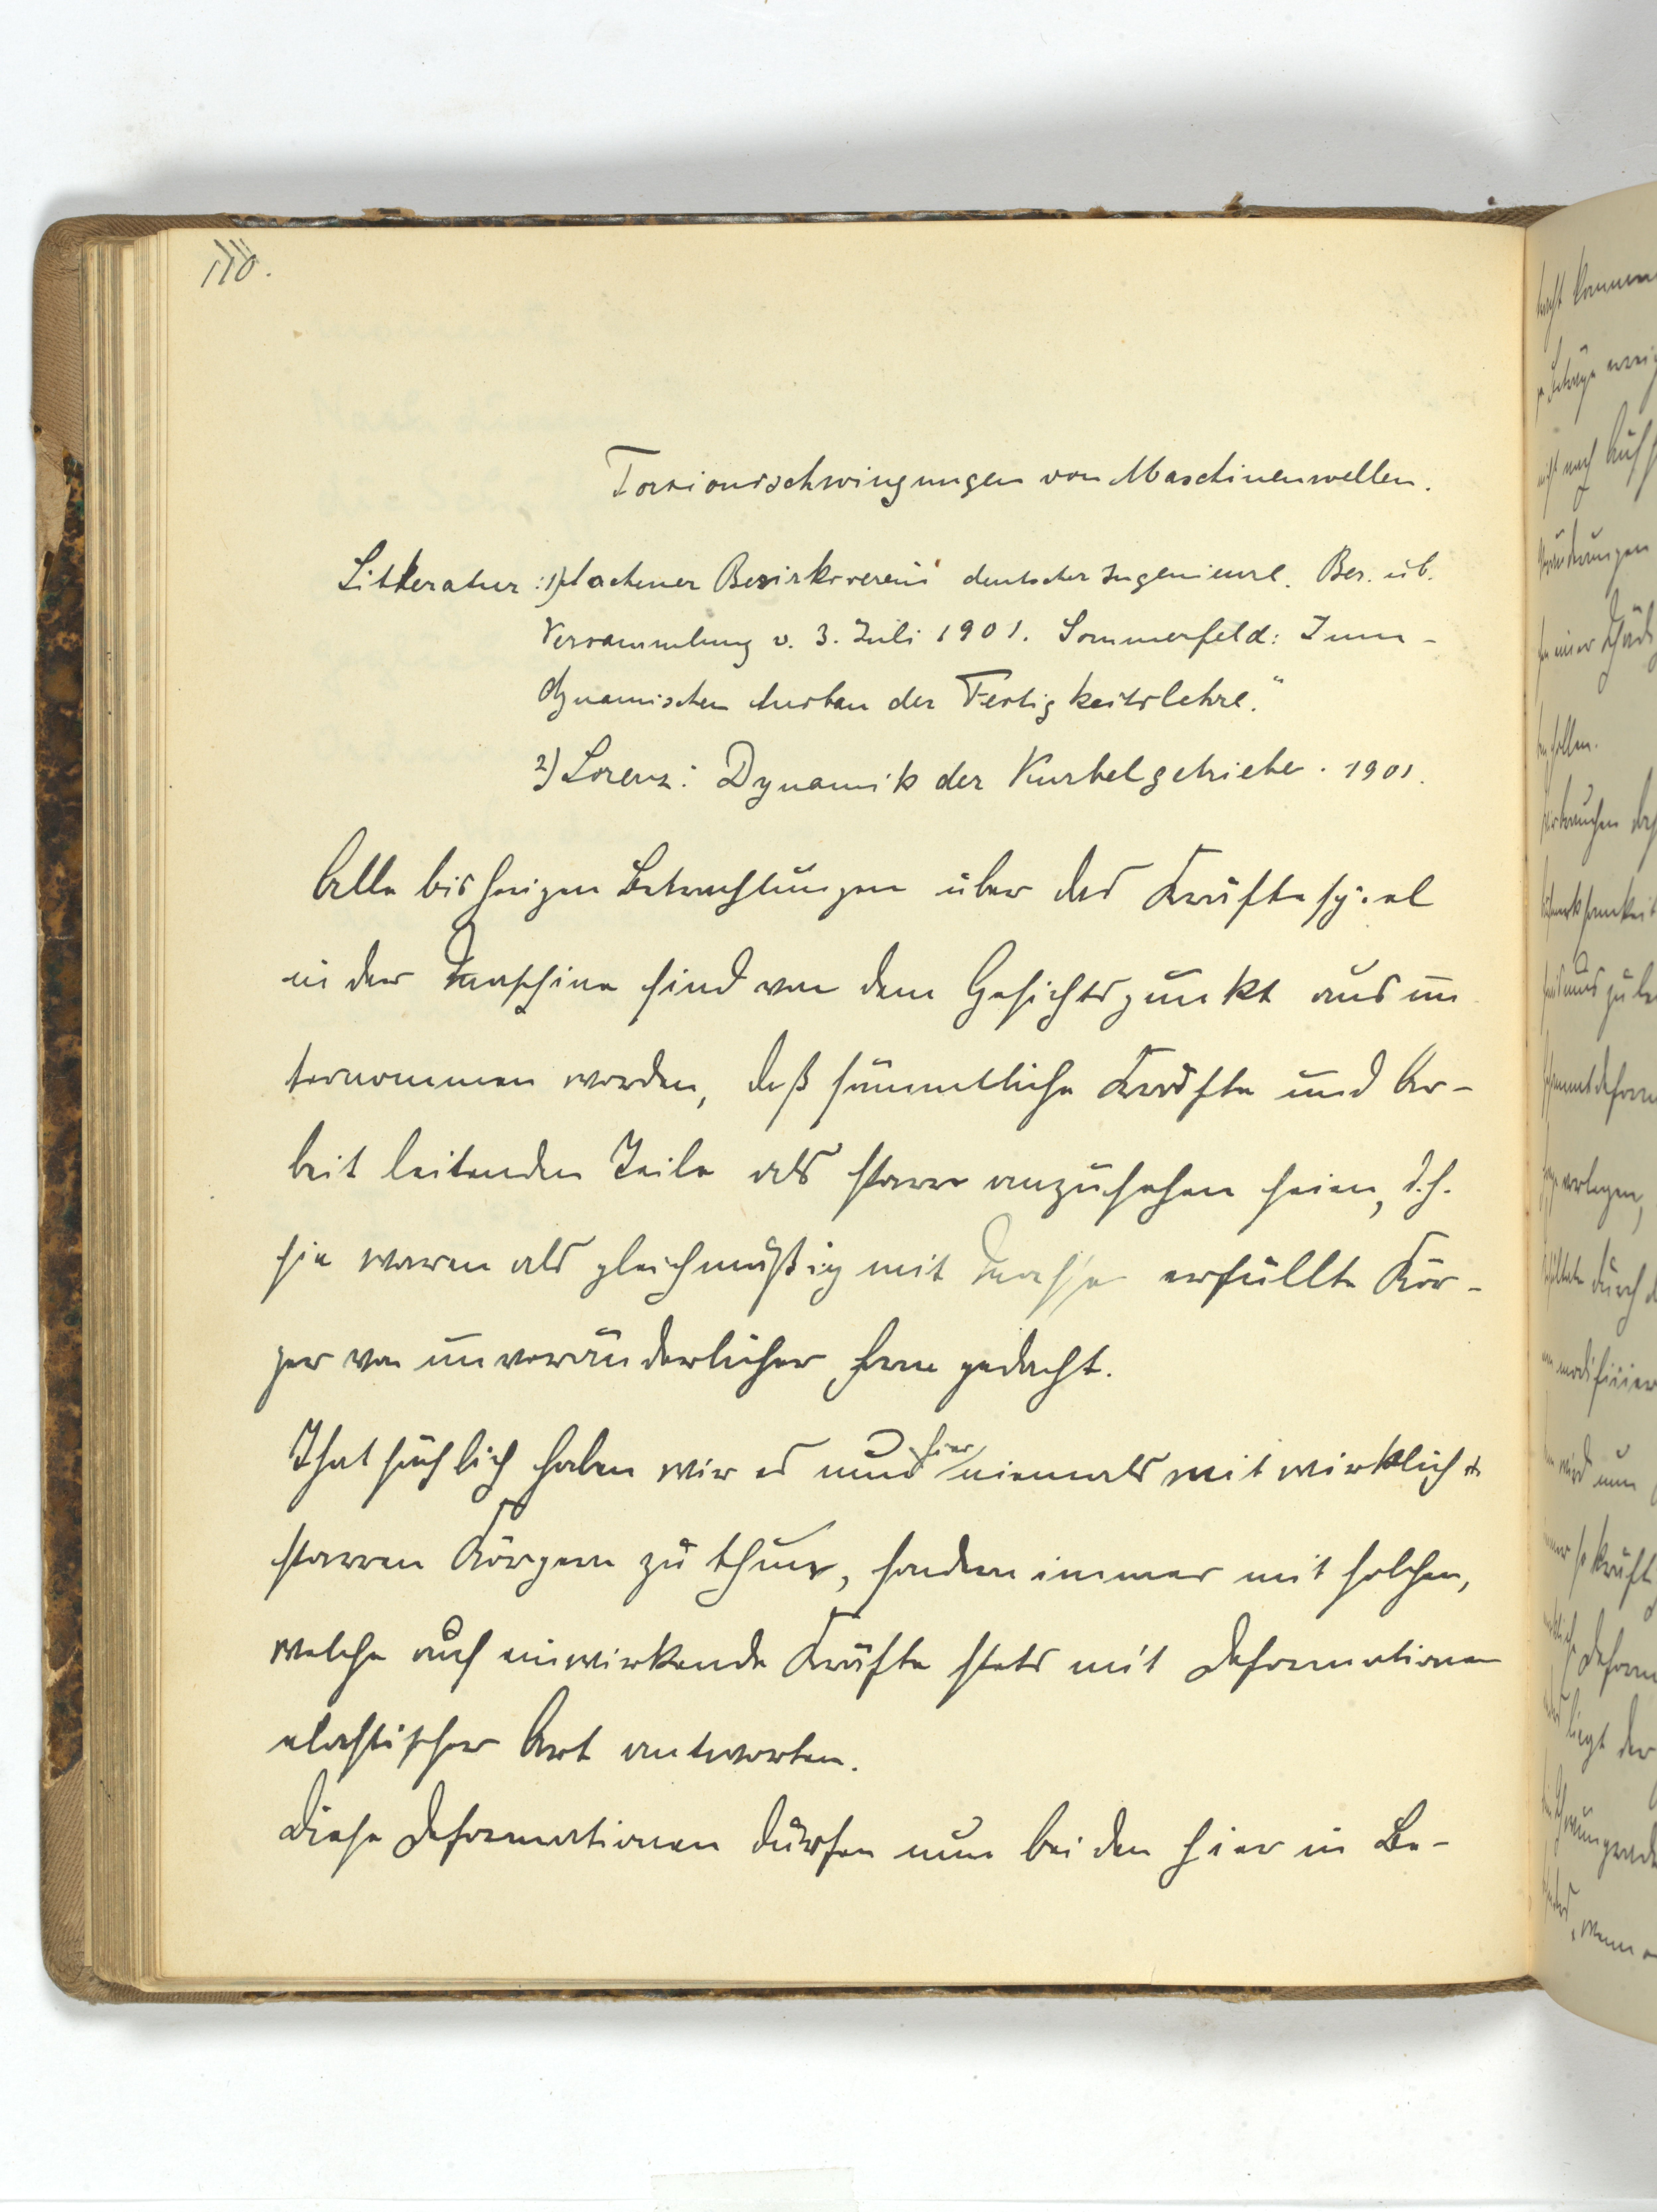 110.
Torsionsschwingungen von Maschinenwellen.
Litteratur: 1) Aachener Bezirksverein deutscher Ingenieure. Ber. üb.
Versammlung v. 3. Juli 1901. Sommerfeld: Zum
dynamischen Ausbau der Festigkeitslehre."
2) Lorenz: Dynamik der Kurbelgetriebe. 1901.
Alle bisherigen Betrachtungen über das Kräftespiel
in der Maschine sind von dem Gesichtspunkt aus un
ternommen worden, daß sämmtliche Kräfte und Ar-
beit leitenden Teile als starr anzusehen seien, d.h.
sie waren als gleichmäßig mit Masse erfüllte Kör-
per von unveränderlicher Form gedacht.
Thatsächlich haben wir es nun hier niemals mit wirklich
starren Körpern zu thun, sondern immer mit solchen,
welche auf einwirkende Kräfte stets mit Deformationen
elastischer Art antworten.
Diese Deformationen dürfen nun bei den hier in Be-